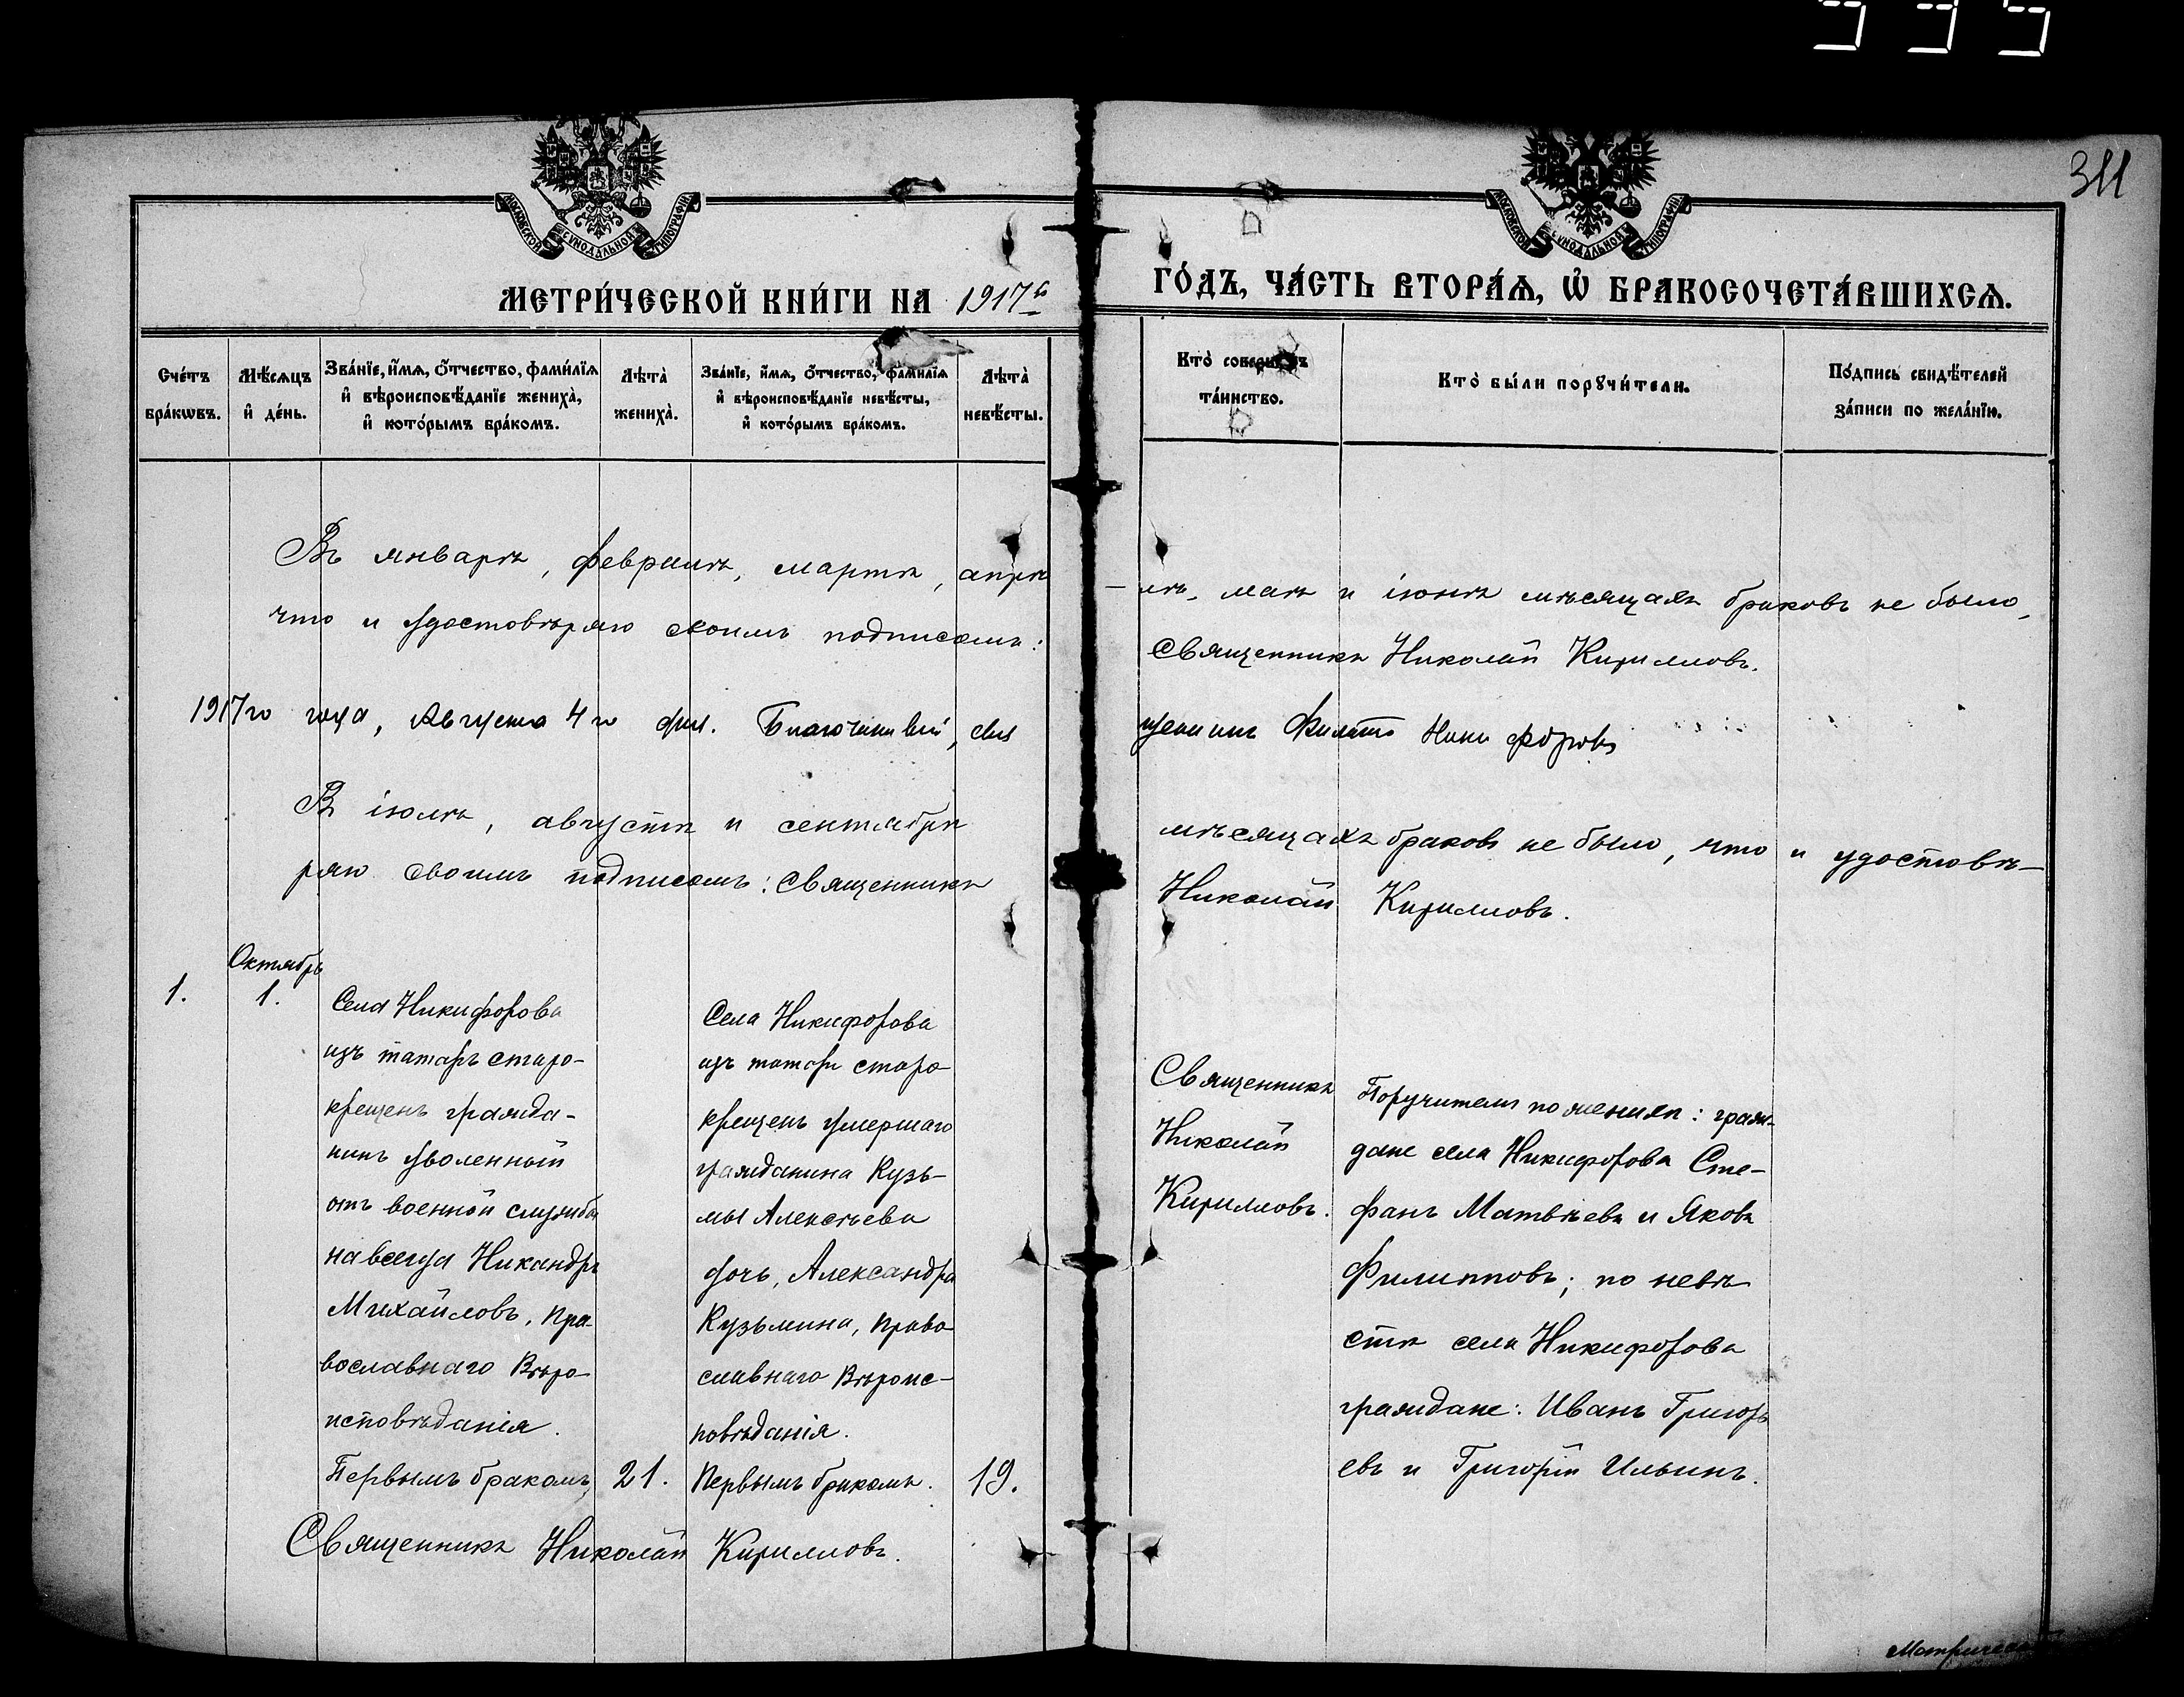 311
МОСКОВСКОЙ СѴНОДАЛЬНОЙ ТИПОГРАФІИ
МОСКОВСКОЙ СѴНОДАЛЬНОЙ ТИПОГРАФІИ
МЕТРИ́ЧЕСКОЙ КНИ́ГИ НА 1917й ГО́ДЪ, ЧА́СТЬ ВТОРА́Ѧ, Ѡ БРАКОСОЧЕТА́ВШИХСѦ.
Сче́тъ бра́кѡвъ.
Мѣ́сѧцъ и҆ де́нь.
Зва́нїе, и҆́мѧ, ѻ҆́тчество, фами́лїѧ
и҆ вѣроисповѣ́данїе жениха̀,
и҆ кото́рымъ бра́комъ.
Лѣта̀ жениха̀.
Зва́нїе, и҆́мѧ, ѻ҆́тчество, фами́лїѧ
и҆ вѣроисповѣ́данїе невѣ́сты,
и҆ кото́рымъ бра́комъ.
Лѣта̀ невѣ́сты.
Кто̀ соверши́лъ
та́инство.
Кто̀ бы́ли порꙋчи́тели.
По́дпись свидѣ́телей
за́писи по жела́нїю.
Въ январѣ, февралѣ, мартѣ, апрѣ-
лѣ, маѣ и іюнѣ мѣсяцахъ браковъ не было,
что и удостовѣряю своимъ подписомъ:
Священникъ Николай Кирилловъ.
1917го года, Августа 4го дня. Благочинный, свя
щенникъ Филиппъ Никифоровъ
Въ іюлѣ, августѣ и сентябрѣ
мѣсяцахъ браковъ не было, что и удостовѣ-
ряю своимъ подписомъ: Священникъ
Николай Кирилловъ.
Октябрь
1.
1.
Села Никифорова
изъ татаръ старо-
крещенъ гражда-
нинъ уволенный
отъ военной службы
навсегда Никандръ
Михайловъ, Пра-
вославнаго Вѣро-
исповѣданія.
Первымъ бракомъ,
21.
Села Никифорова
изъ татаръ старо-
крещенъ умершаго
гражданина Кузь-
мы Алексѣева
дочь, Александра
Кузьмина, Право-
славнаго Вѣроис-
повѣданія.
Первымъ бракомъ.
19.
Священникъ
Николай
Кирилловъ.
Поручители по женихѣ: граж-
дане села Никифорова Сте-
фанъ Матвѣевъ и Яковъ
Филипповъ; по невѣ
стѣ села Никифорова
граждане: Иванъ Григорь
евъ и Григорій Ильинъ.
Священникъ Николай Кирилловъ.